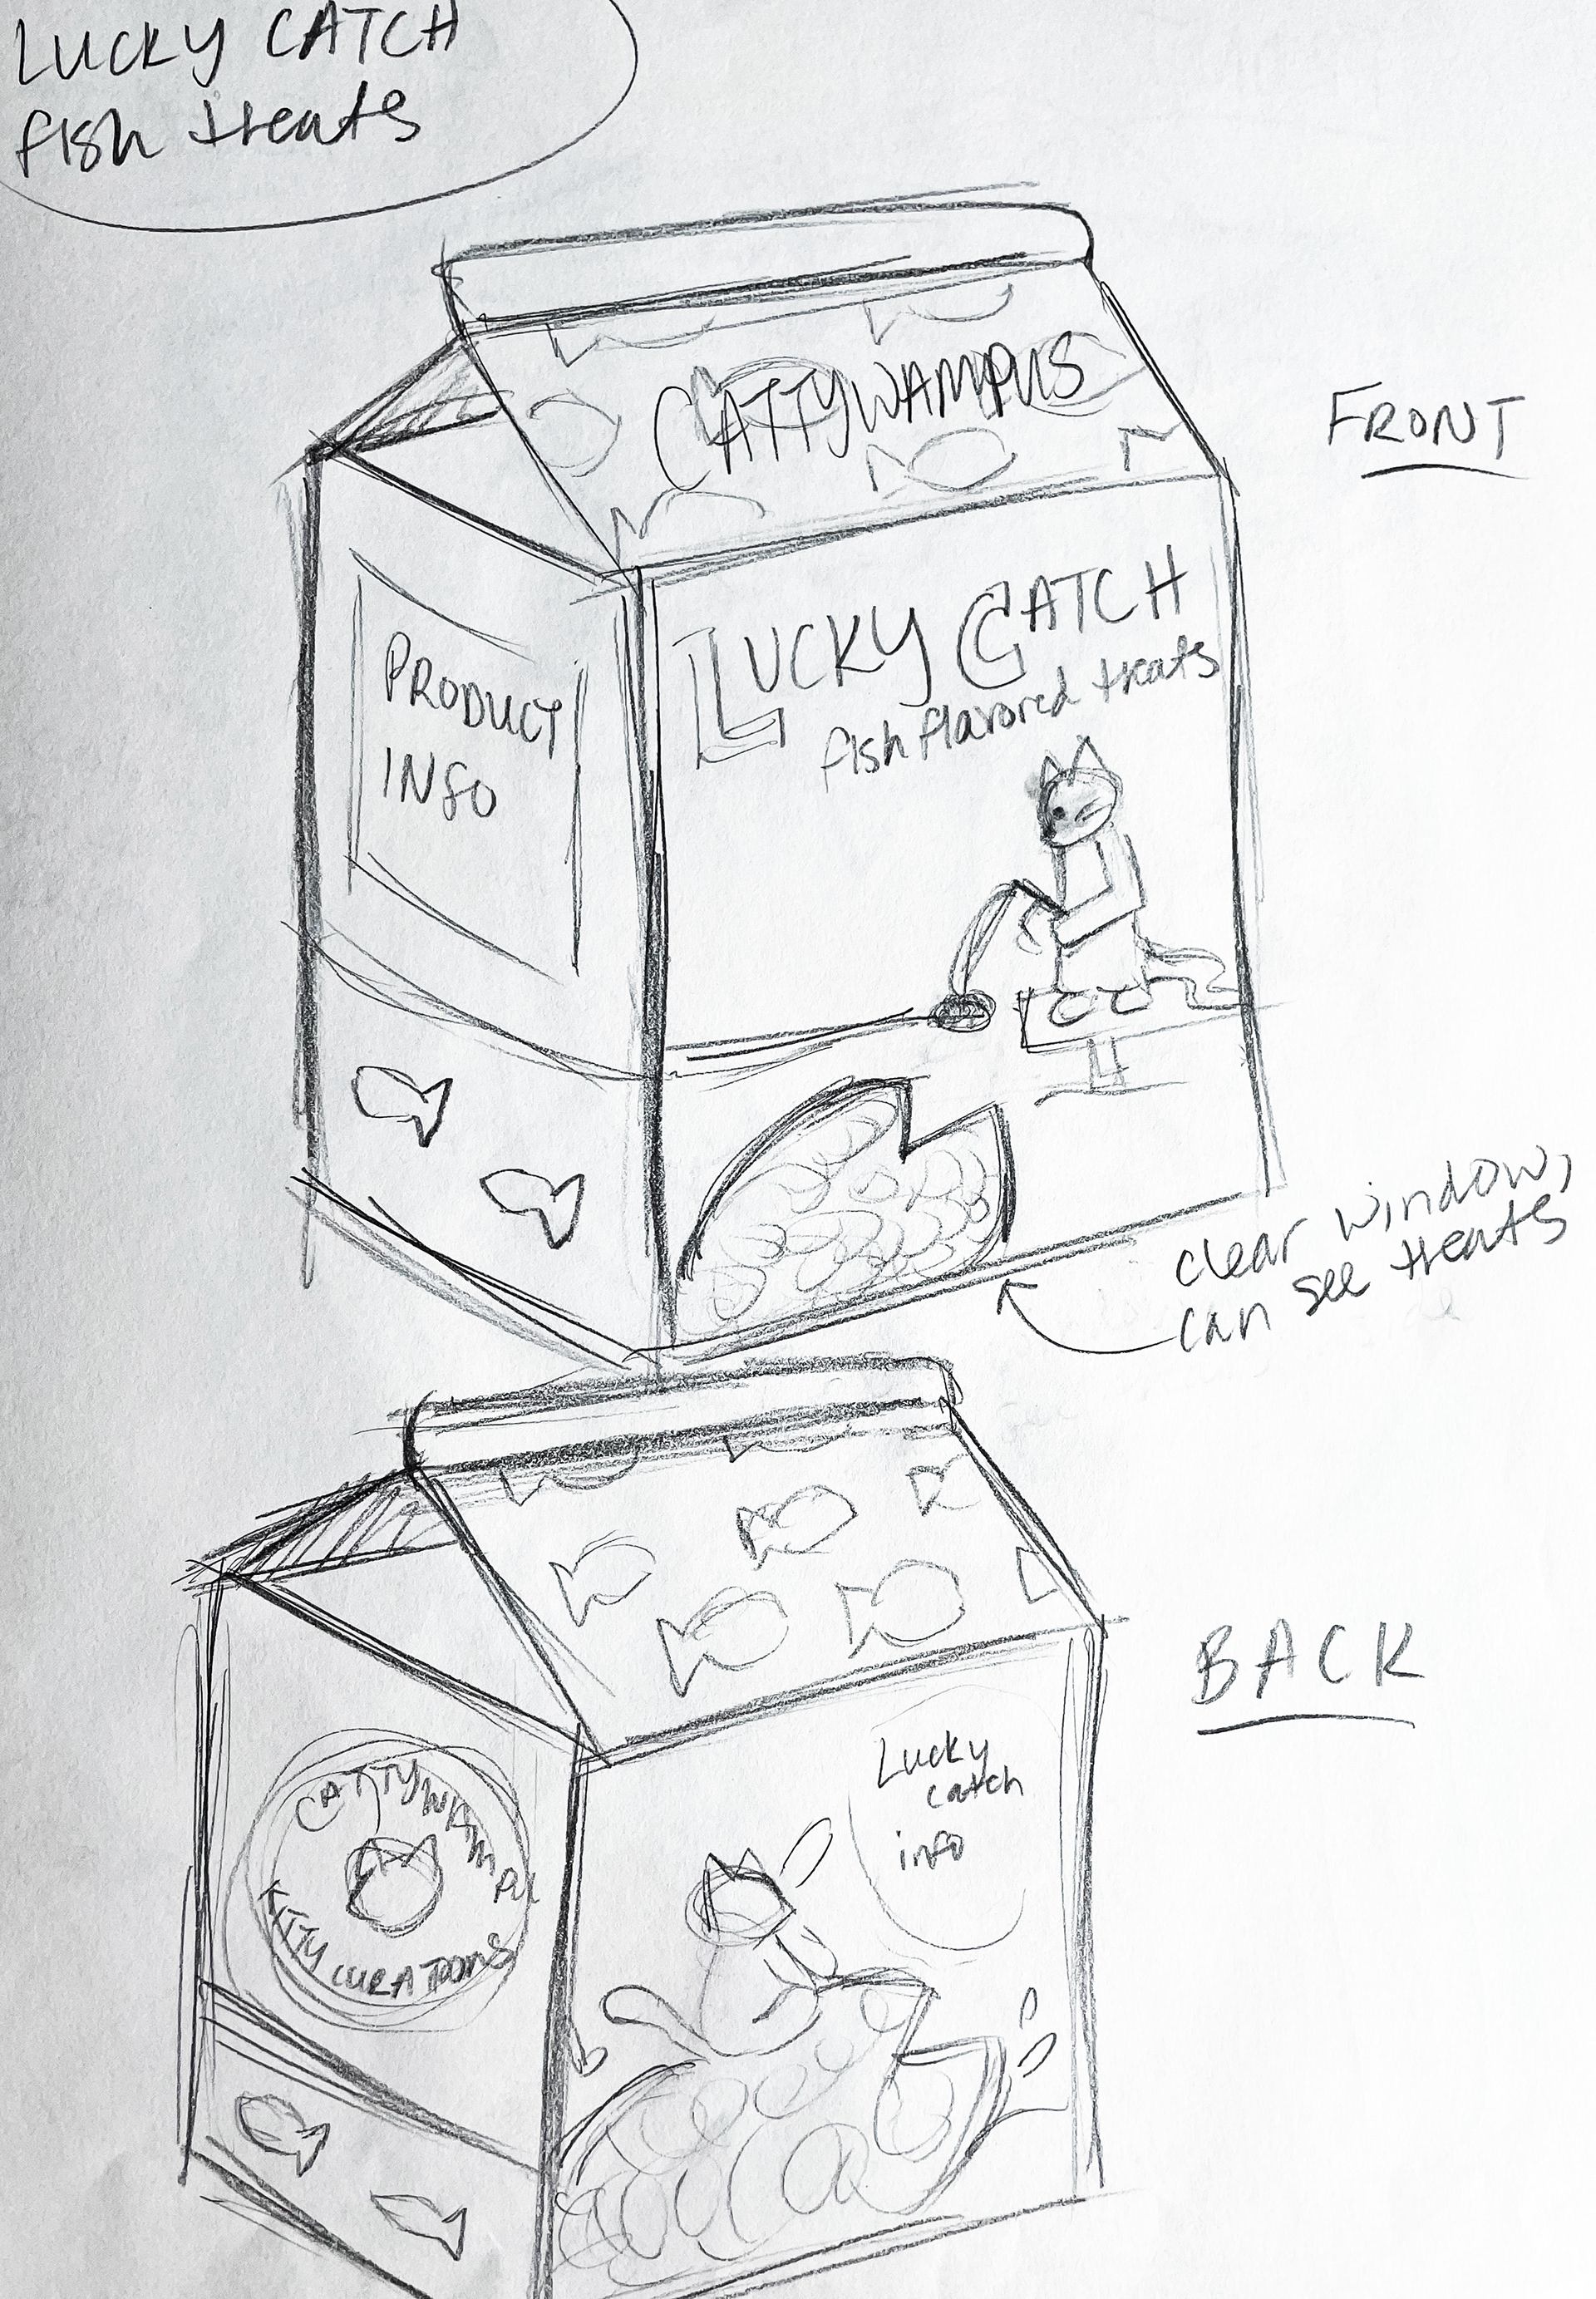 LUCKY CATCH
fish treats
CATTYWAMPUS
FRONT
LUCKY CATCH
fish flavored treats
PRODUCT
INFO
clear window,
can see treats
BACK
Lucky
catch
info
CATTYWAMPU
KITTY CURATIONS